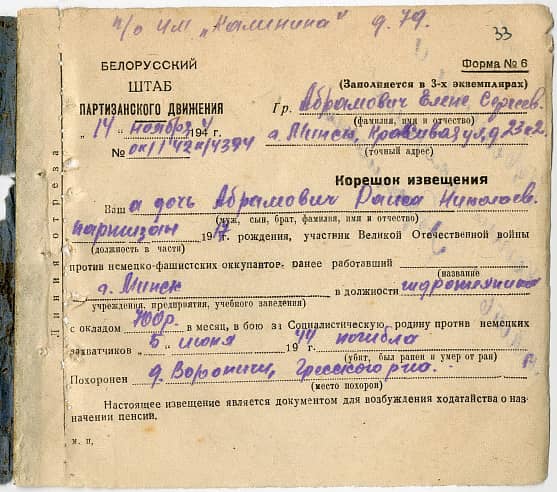 п/о им „Калинина" д. 79.
33
БЕЛОРУССКИЙ
ШТАБ
ПАРТИЗАНСКОГО ДВИЖЕНИЯ
„ 14 " ноября 1944 г.
№
Форма № 6
(Заполняется в 3-х экземплярах)
Гр. Абрамович Елене Сергеев.
(фамилия, имя и отчество)
г. Минск, Красивая ул, д 23 к 2.
(точный адрес)
Линия отреза
Корешок извещения
Ваша дочь Абрамович Раиса Николаев.
(муж, сын, брат, фамилия, имя и отчество)
партизан 1917 г. рождения, участник Великой Отечественной войны
(должность в части)
против немецко-фашистских оккупантов, ранее работавший
(название
г. Минск в должности
учреждения, предприятия, учебного заведения)
с окладом 400р. в месяц, в бою за Социалистическую родину против немецких
захватчиков 5 июня 1944 погибла
(убит, был ранен и умер от ран)
Похоронен д. Воропичи, Гресского р-на.
(место похорон)
Настоящее извещение является документом для возбуждения ходатайства о на-
значении пенсии.
м. п.